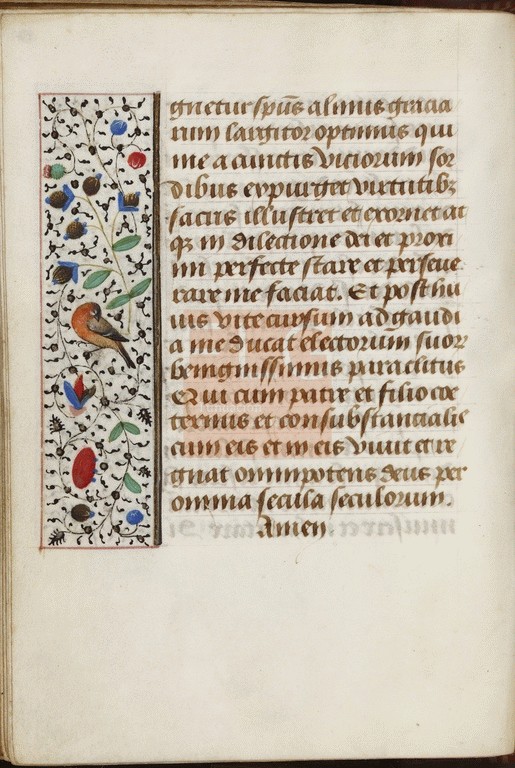 gnetur spūs almus gracia
rum largitor optimus qui
me a cunctis viciorum sor
dibus expurget virtutibȝ
sacris illustret et exornet at
qȝ in dilectione dei et proxi
mi perfecte stare et perseue
rare me faciat. Et post hu
ius vite cursum ad gaudi
a me ducat electorum suoꝝ
beingnissimus paraclitus
Qui cum patre et filio coe
ternus et consubstancialis
cum eis et in eis viuit et re
gnat omnipotens deus per
omnia secula seculorum.
Amen.